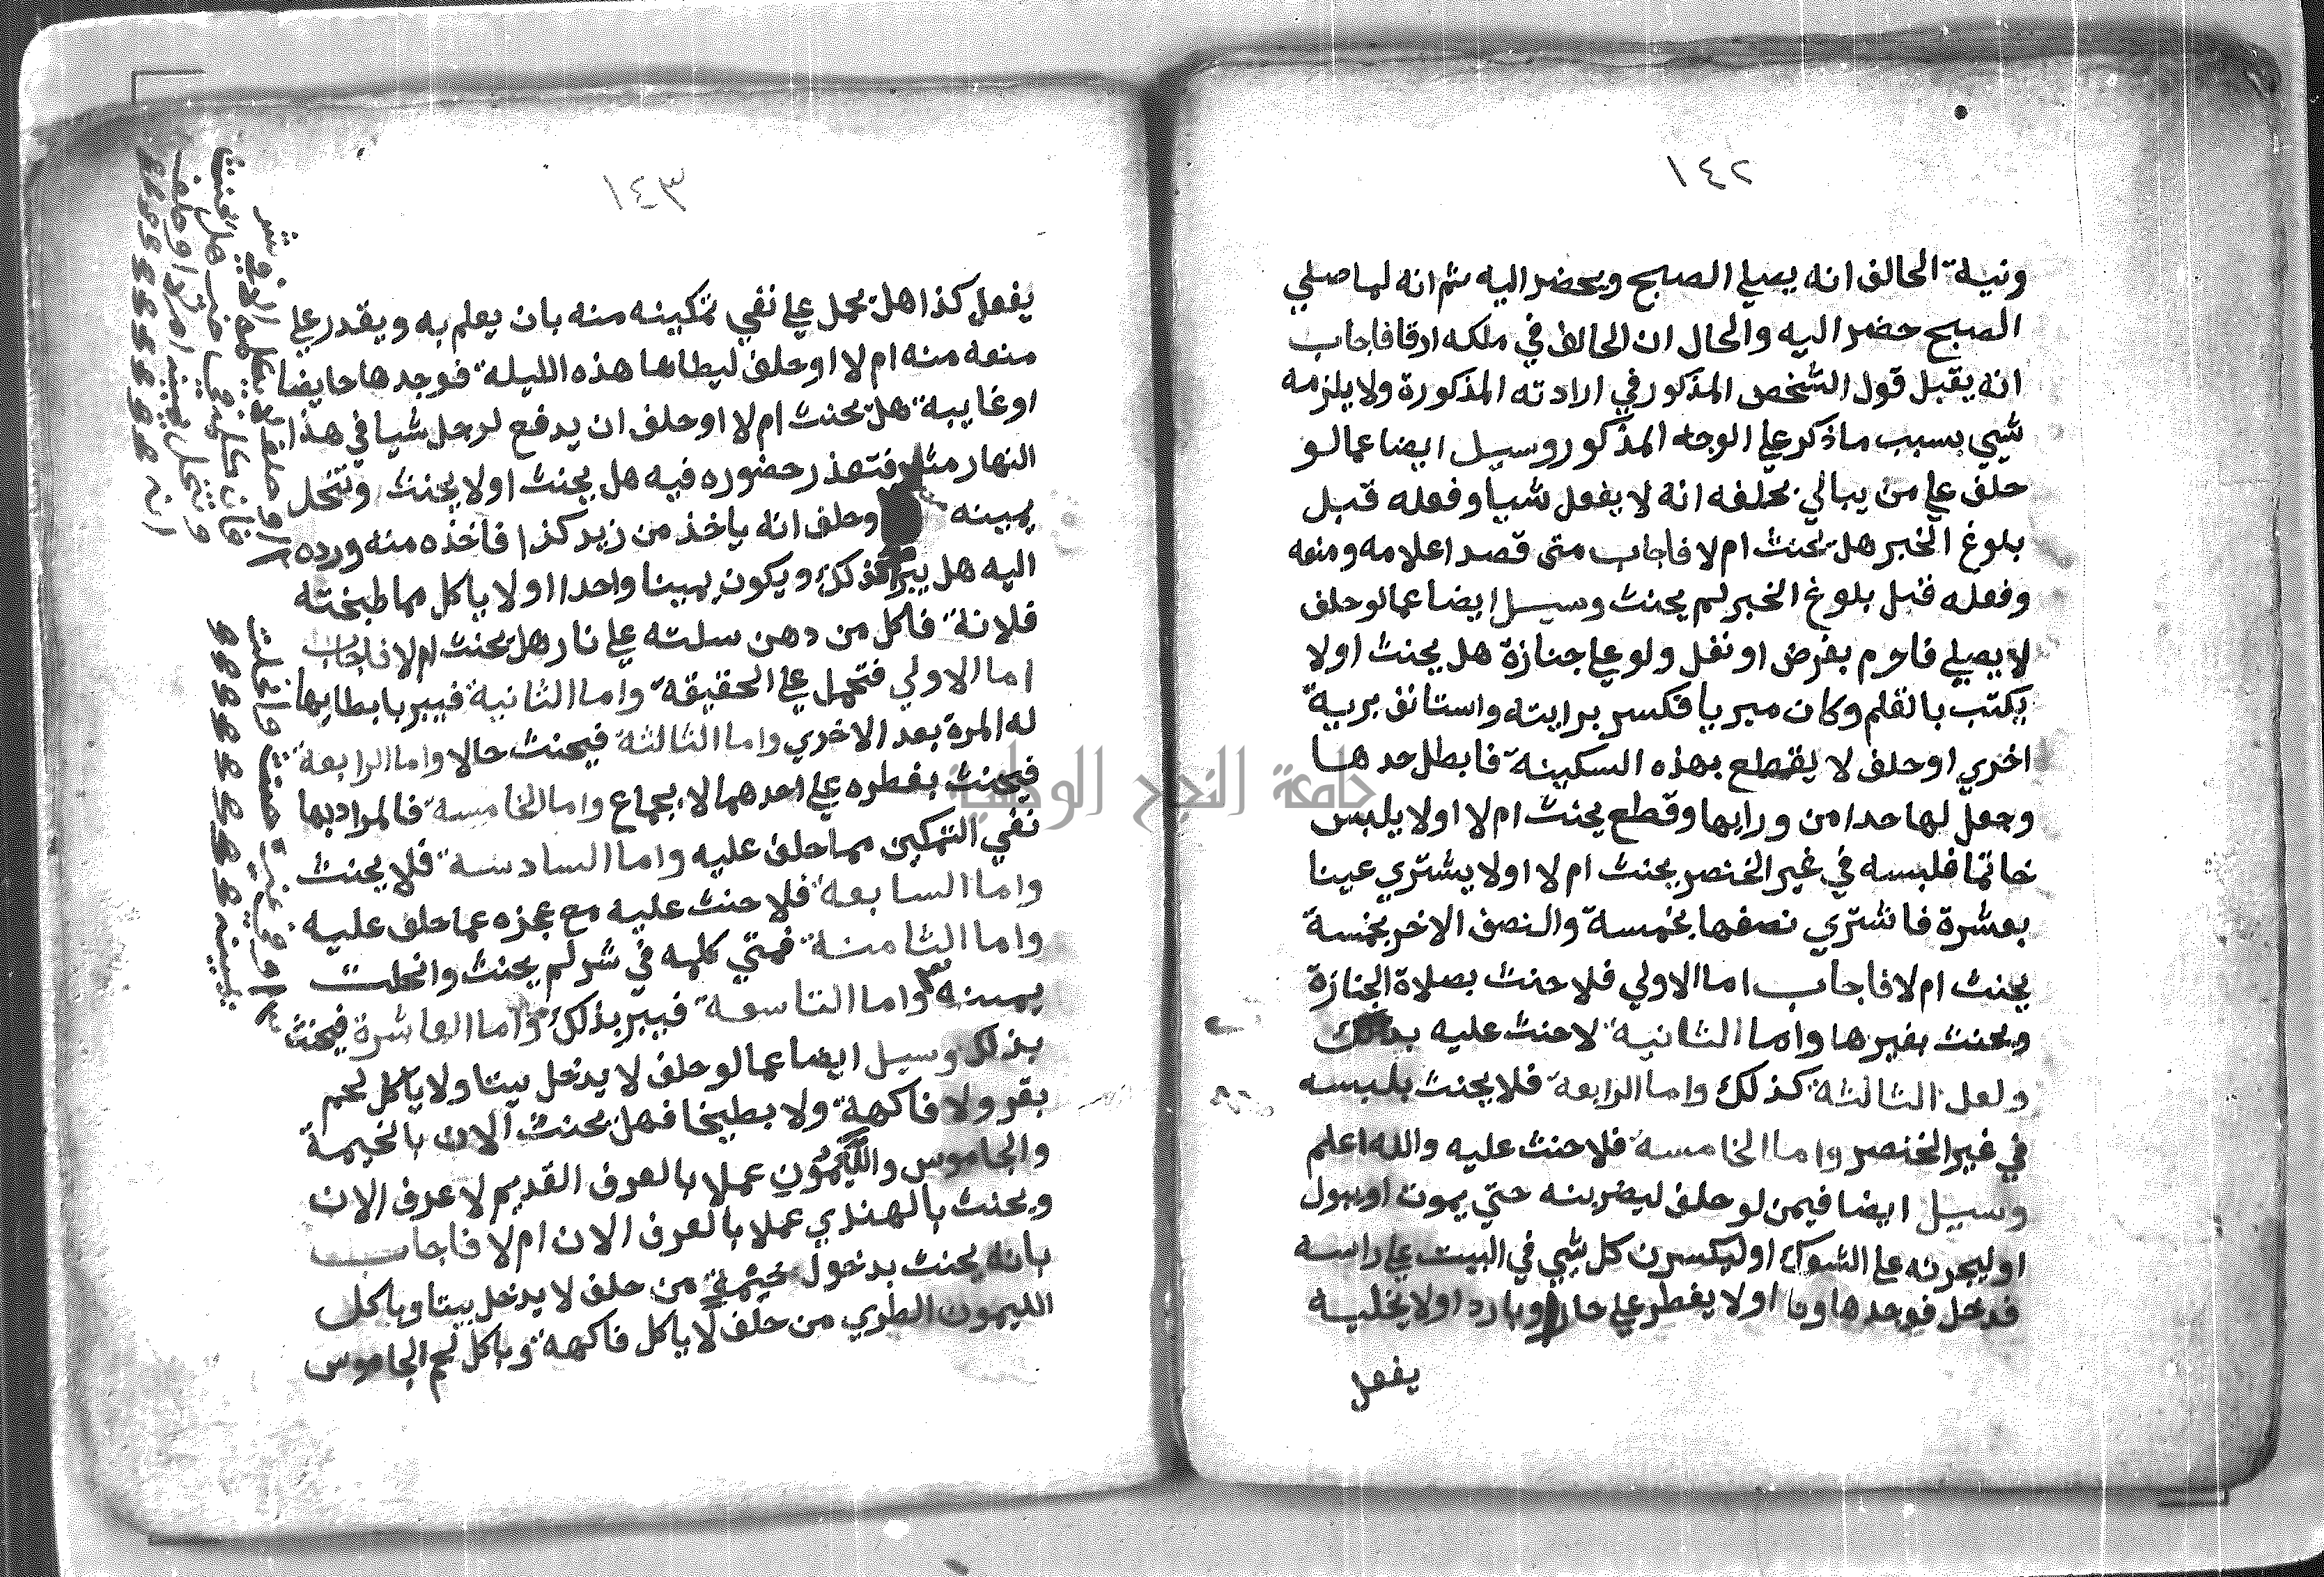 ١٤٢
ونية الحالف انه يصلي الصبح ويحضر اليه ثم انه لما صلي
الصبح حضر اليه والحال ان الحالف في ملكه ارقا فاجاب
انه يقبل قول الشخص المذكور في ارادته المذكورة ولا يلزمه
شيي بسبب ما ذكر علي الوجه المذكور وسيل ايضا عما لو
حلف علي من يبالي بحلفه انه لا يفعل شيا وفعله قبل
بلوغ الخبر هل يحنث ام لا فاجاب متي قصد اعلامه ومنعه
وفعله قبل بلوغ الخبر لم يحنث وسيل ايضا عما لو حلف
لا يصلي فاحرم بفرض او نفل ولو علي جنازة هل يحنث اولا
يكتب بالقلم وكان مبريا فكسر برايته واستانف برية
اخري او حلف لا يقطع بهذه السكينة فابطل حدها
وجعل لها حدا من ورايها وقطع يحنث ام لا اولا يلبس
خاتما فلبسه في غير الخنصر يحنث ام لا اولا يشتري عينا
بعشرة فاشتري نصفها بخمسة والنصف الاخر بخمسة
يحنث ام لا فاجاب اما الاولي فلا حنث بصلاة الجنازة
ويحنث بغيرها واما الثانية لا حنث عليه بذلك
ولعل الثالثة كذلك واما الرابعة فلا يحنث بلبسه
في غير الخنصر واما الخامسة فلا حنث عليه والله اعلم
وسيل ايضا فيمن لو حلف ليضربنه حتي يموت او يبول
او ليجرنه علي الشوك او ليكسرن كل شيي في البيت علي راسه
فدخل فوجد هاونا اولا يفطر علي حار وبارد اولا يخليه
يفعل
١٤٣
يفعل كذا هل يحمل علي نفي تمكينه منه بان يعلم به ويقدر علي
منعه منه ام لا او حلف ليطاها هذه الليلة فوجدها حايضا
او غايبة هل يحنث ام لا او حلف ان يدفع لرجل شيا في هذا
النهار مثلا فتعذر حضوره فيه هل يحنث اولا يحنث وتنحل
يمينه وحلف انه ياخذ من زيد كذا فاخذه منه ورده
اليه هل يبر بذلك ويكون يمينا واحدا اولا ياكل مما طبخته
فلانة فاكل من دهن سلته علي نار هل يحنث ام لا فاجاب
اما الاولي فتحمل علي الحقيقة واما الثانية فيبر بابطايها
له المرة بعد الاخري واما الثالثة فيحنث حالا واما الرابعة
فيحنث بفطره علي احدهما لا بجماع واما الخامسة فالمراد بها
نفي التمكين مما حلف عليه واما السادسة فلا يحنث
واما السابعة فلا حنث عليه مع عجزه عما حلف عليه
واما الثامنة فمتي كلمه في شر لم يحنث وانحلت
يمينه واما التاسعة فيبر بذلك واما العاشرة فيحنث
بذلك وسيل ايضا عما لو حلف لا يدخل بيتا ولا ياكل لحم
بقر ولا فاكهة ولا بطيخا فهل يحنث الان بالخيمة
والجاموس والليمون عملا بالعرف القديم لا عرف الان
ويحنث بالهندي عملا بالعرف الان ام لا فاجاب
بانه يحنث بدخول خيمة من حلف لا يدخل بيتا وباكل
الليمون الطري من حلف لا ياكل فاكهة وباكل لحم الجاموس
جامعة النجاح الوطنية